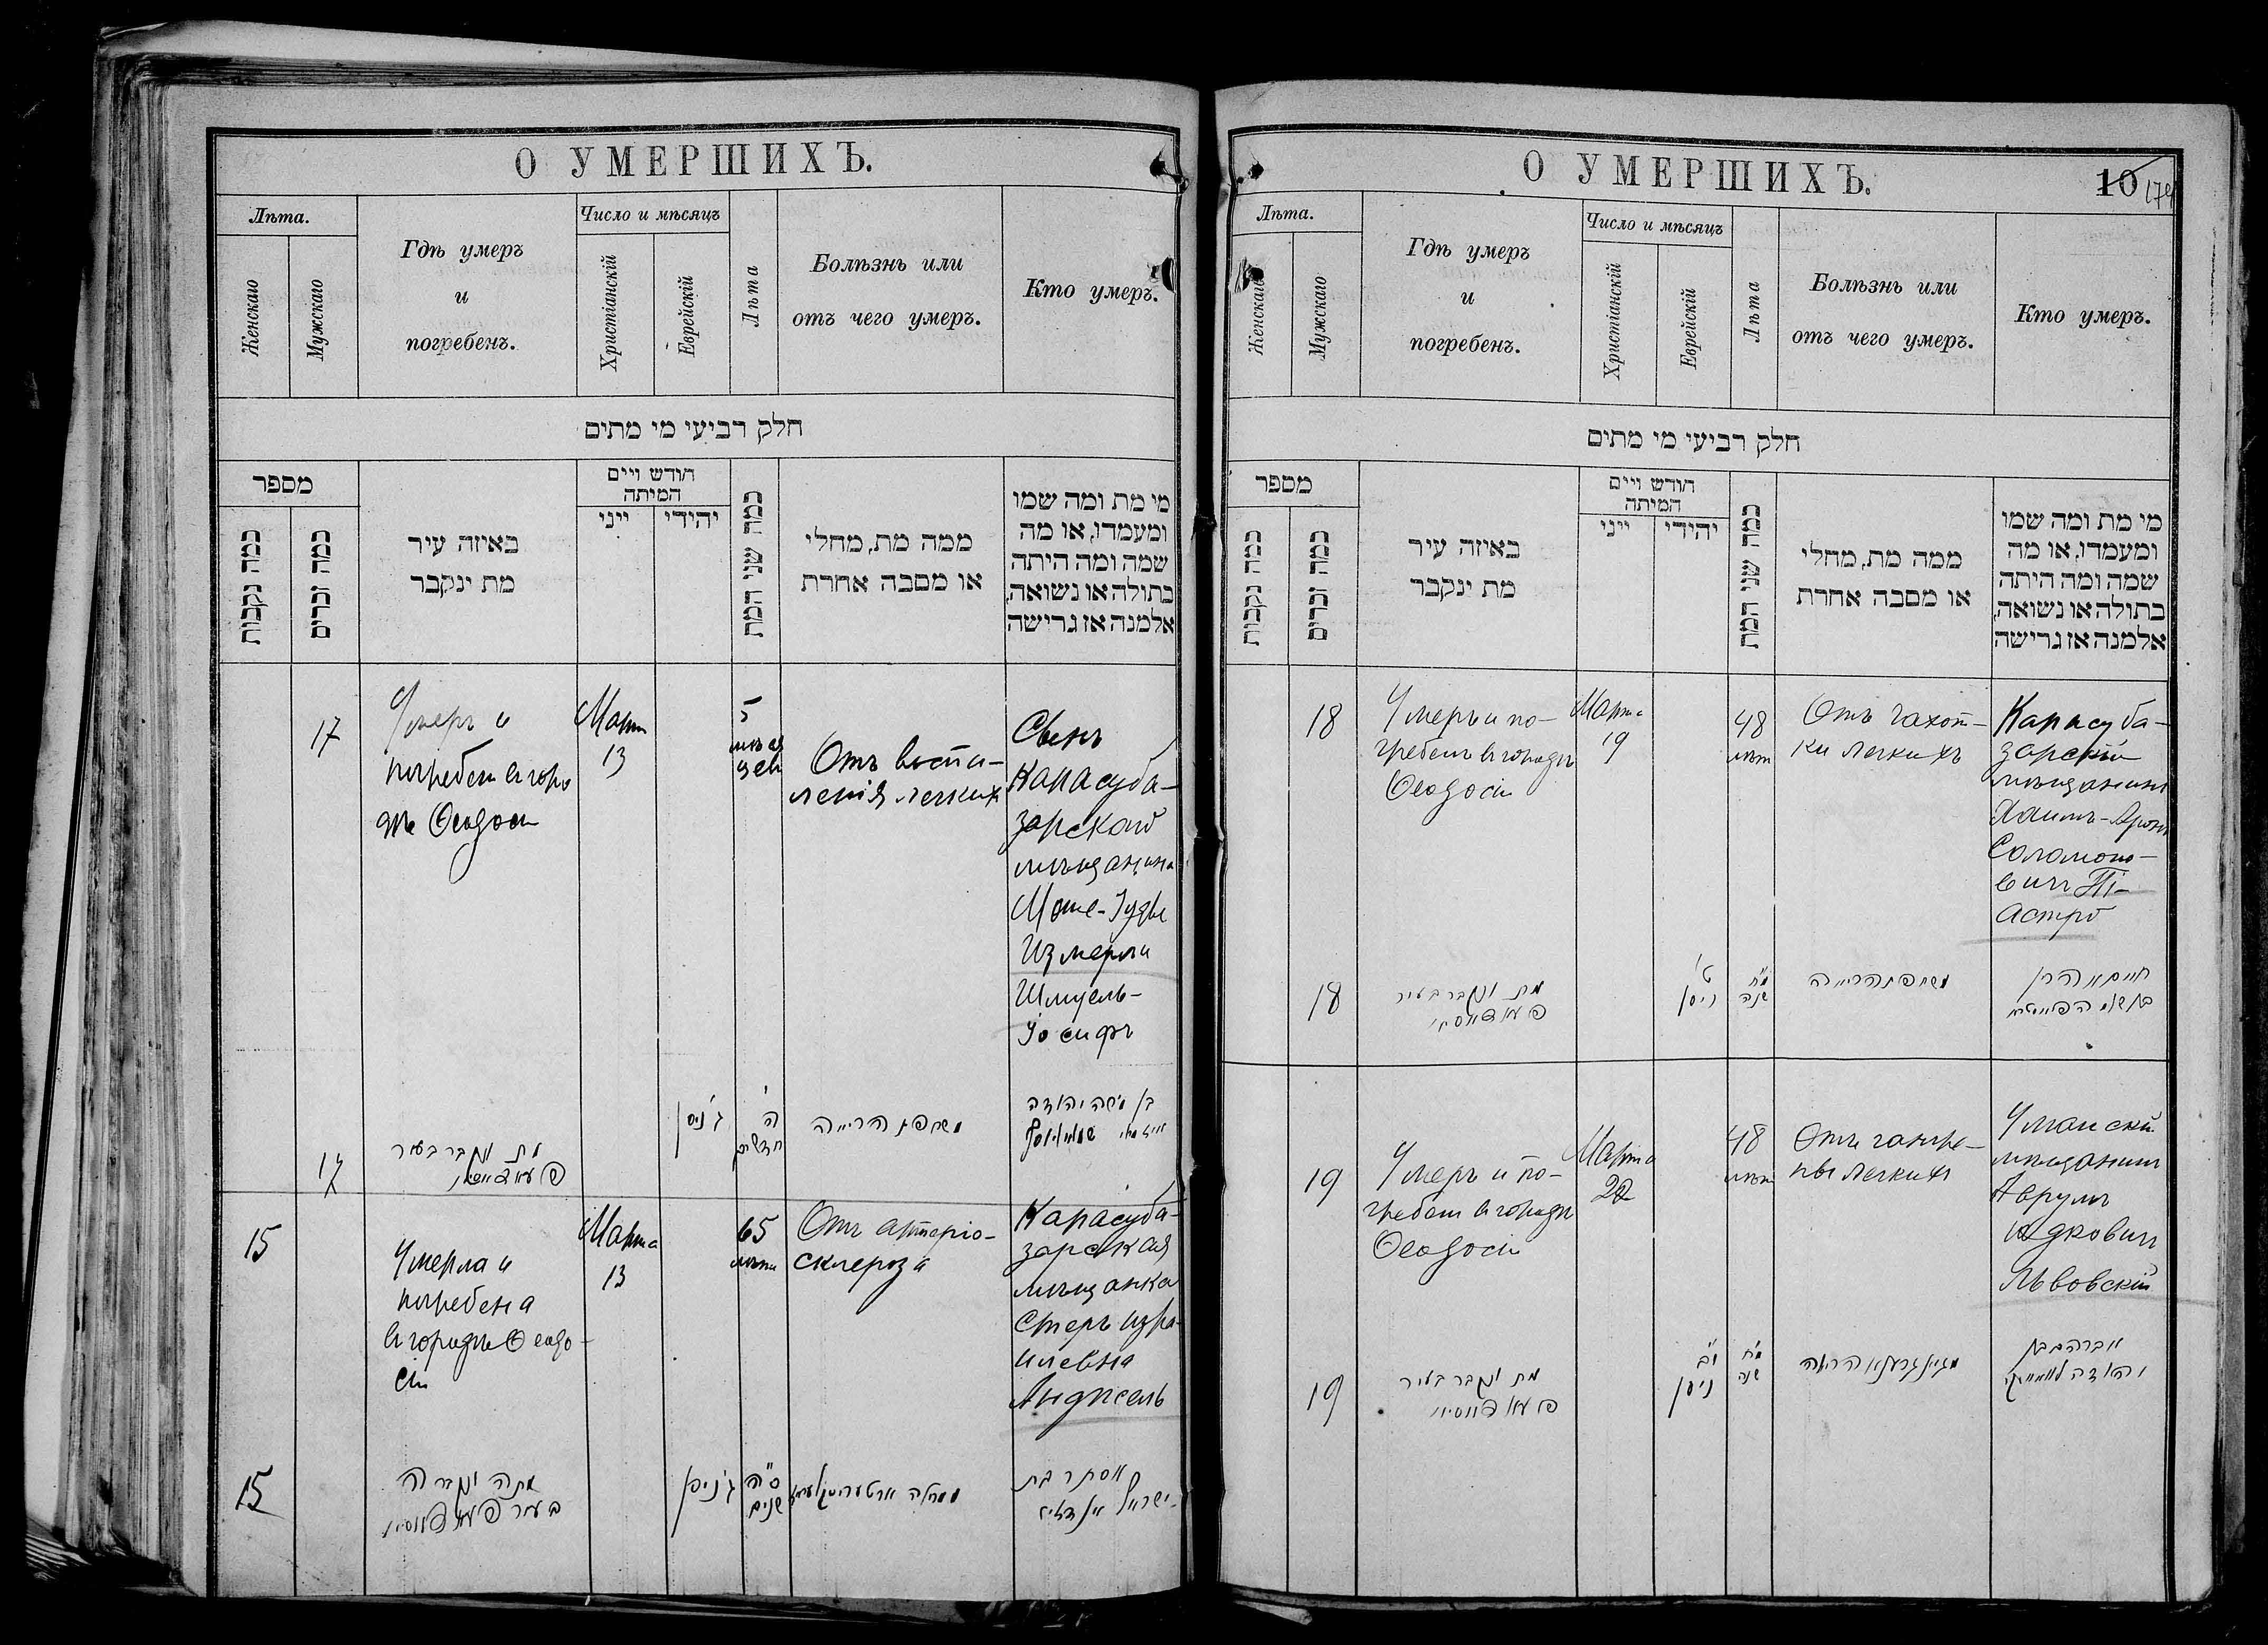 О УМЕРШИХЪ.
Лѣта.
Женскаго
Мужскаго
Гдѣ умеръ
и
погребенъ.
Число и мѣсяцъ
Христіанскій
Еврейскій
Лѣта
Болѣзнь или
отъ чего умеръ.
Кто умеръ.
חלק רביעי מי מתים
מספר
כמה נקבות
כמה זכרים
באיזה עיר
מת ינקבר
חודש ויים
המיתה
ייני
יהודי
כמה שני המת
ממה מת, מחלי
או מסבה אחרת
מי מת ומה שמו
ומעמדו, או מה
שמה ומה היתה
בתולה או נשואה,
אלמנה אז גרישה
17
Умеръ и
погребенъ въ горо
дѣ Ѳеодосіи
Марта
13
мѣся
цевъ
Отъ воспа-
ленія легкихъ
Сынъ
Карасуба-
зарскаго
мѣщанина
Моше-Іуды
Измерли
Шмуель-
Іосифъ
17
מת ונקבר בעיר
ג' ניסן
ה'
חדשים
משחפת הריאה
בן משה יהודה
15
Умерла и
погребена
въ городѣ Ѳеодо-
сіи
Марта
13
65
лѣтъ
Отъ артеріо-
склероза
Карасуба-
зарская
мѣщанка
Стеръ Изра-
илевна
Анджель
15
מתה ונקברה
ג' ניסן
ס"ה
שנים
אסתר בת
О УМЕРШИХЪ.
10
Лѣта.
Женскаго
Мужскаго
Гдѣ умеръ
и
погребенъ.
Число и мѣсяцъ
Христіанскій
Еврейскій
Лѣта
Болѣзнь или
отъ чего умеръ.
Кто умеръ.
חלק רביעי מי מתים
מספר
כמה נקבות
כמה זכרים
באיזה עיר
מת ינקבר
חודש ויים
המיתה
ייני
יהודי
כמה שני המת
ממה מת, מחלי
או מסבה אחרת
מי מת ומה שמו
ומעמדו, או מה
שמה ומה היתה
בתולה או נשואה,
אלמנה אז גרישה
18
Умеръ и по-
гребенъ въ городѣ
Ѳеодосіи
Марта
19
48
лѣтъ
Отъ чахот-
ки легкихъ
Карасуба-
зарскій
мѣщанинъ
Хаимъ-Аронъ
Соломоно-
вичъ Пі-
астро
18
מת ונקבר בעיר
ט'
ניסן
מ"ח
שנה
משחפת הריאה
חיים אהרן
19
Умеръ и по-
гребенъ въ городѣ
Ѳеодосіи
Марта
22
48
лѣтъ
Отъ гангре-
ны легкихъ
Уманскій
мѣщанинъ
Аврумъ
Юдковичъ
Львовскій
19
מת ונקבר בעיר
י"ב
ניסן
מ"ח
שנה
אברהם בן